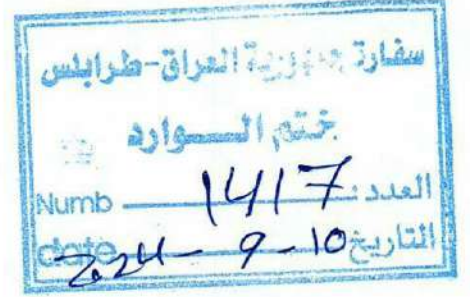 سفارة جمهورية العراق-طرابلس
ختم الـــوارد
العدد: 1417 Numb
التاريخ 2024 - 9 - 10 date